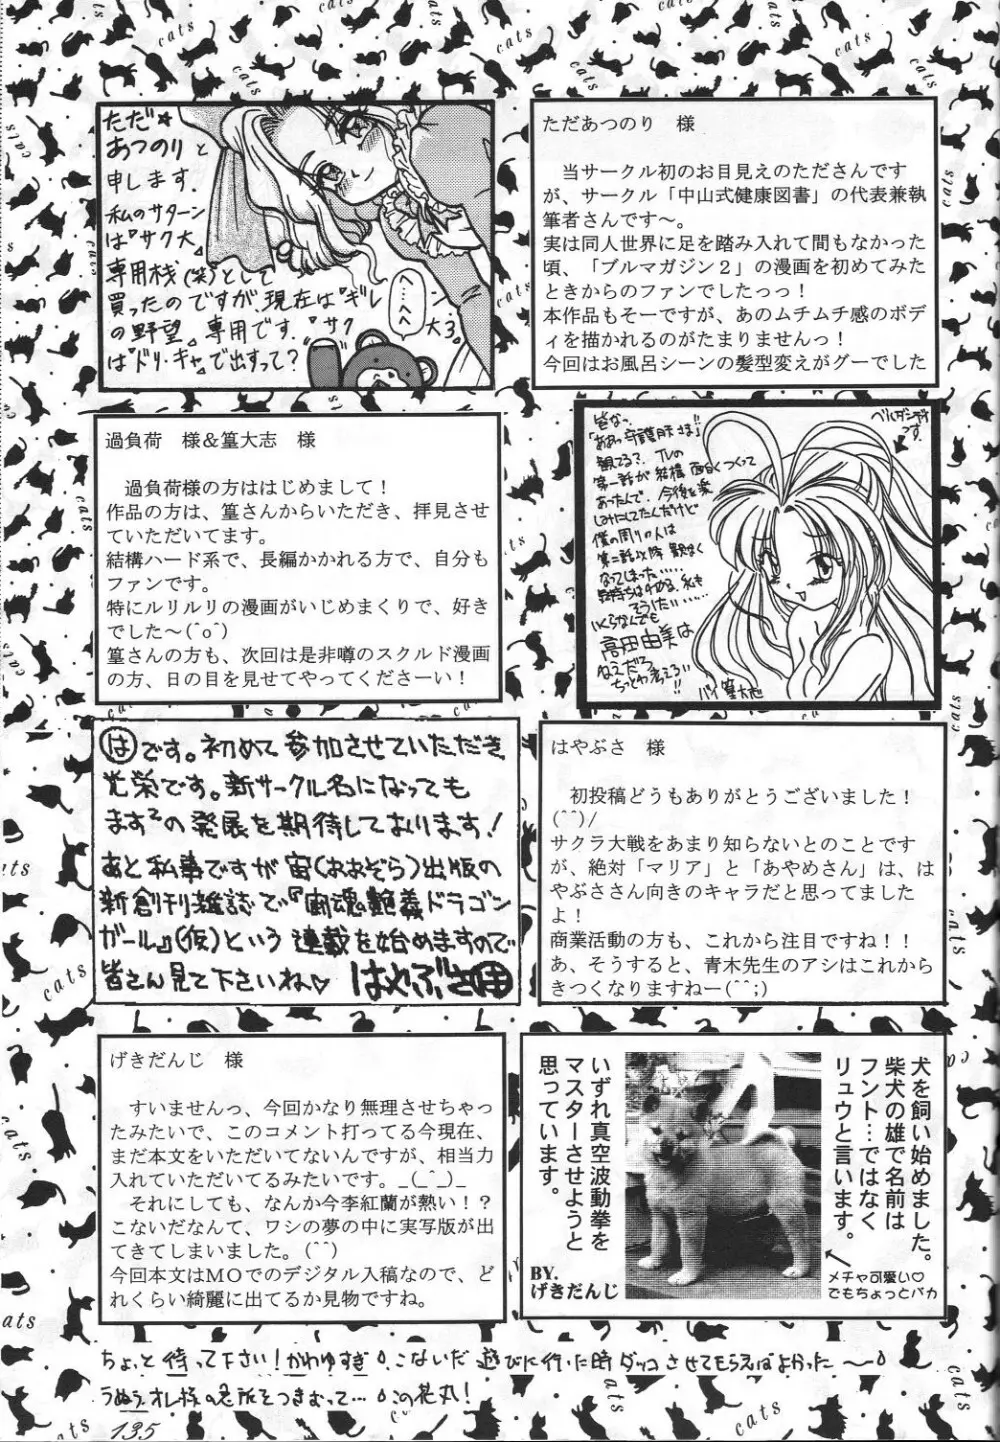 ただ☆
あつのりと
申します.
私のサターン
は『サク大』
専用栈(笑)として
買ったのですが、現在は『ギレン
の野望』専用です.『サク大3』
は『ドリ・キャ』で出すって?
へ…へへ
ただあつのり　様
当サークル初のお目見えのたださんです
が、サークル「中山式健康図書」の代表兼執
筆者さんです～。
実は同人世界に足を踏み入れて間もなかった
頃、「ブルマガジン２」の漫画を初めてみた
ときからのファンでしたっっ！
本作品もそーですが、あのムチムチ感のボデ
ィを描かれるのがたまりませんっ！
今回はお風呂シーンの髪型変えがグーでした
過負荷　様＆篁大志　様
過負荷様の方ははじめまして！
作品の方は、篁さんからいただき、拝見させ
ていただいてます。
結構ハード系で、長編かかれる方で、自分も
ファンです。
特にルリルリの漫画がいじめまくりで、好き
でした～(^o^)
篁さんの方も、次回は是非噂のスクルド漫画
の方、日の目を見せてやってくださーい！
ベルダンディ
です.
皆なっ、
「ああっ守護月天さま!!」
観てる?. TVの
第一話が結構面白くつくって
あったんで、今後を楽
しみにしてたんだけど
僕の周りの人は
第二話以降観なく
なってしまった……
気持ちは
そうだい……
いくらなんでも
高田由美は
ねえだろ
ちっとわ考えろい!!
バイ篁大志
はです。初めて参加させていただき
光栄です。新サークル名になっても
ます²の発展を期待しております!
あと私事ですが宙(おおぞら)出版の
新創刊雑誌で『宙魂艶義ドラゴン
ガール』(仮)という連載を始めますので
皆さん見て下さいね♡ はやぶさ
はやぶさ　様
初投稿どうもありがとうございました！
(^^)/
サクラ大戦をあまり知らないとのことです
が、絶対「マリア」と「あやめさん」は、は
やぶささん向きのキャラだと思ってました
よ！
商業活動の方も、これから注目ですね！！
あ、そうすると、青木先生のアシはこれから
きつくなりますねー(^^;)
げきだんじ　様
すいませんっ、今回かなり無理させちゃっ
たみたいで、このコメント打ってる今現在、
まだ本文をいただいてないんですが、相当力
入れていただいてるみたいです。_(_^_)_
それにしても、なんか今李紅蘭が熱い！？
こないだなんて、ワシの夢の中に実写版が出
てきてしまいました。(^^)
今回本文はＭＯでのデジタル入稿なので、ど
れくらい綺麗に出てるか見物ですね。
犬を飼い始めました。
柴犬の雄で名前は
フント…ではなく
リュウと言います。
いずれ真空波動拳を
マスターさせようと
思っています。
BY.
げきだんじ
メチャ可愛い♡
でもちょっとバカ
ちょっと待って下さい!かわゆすぎ。こないだ遊びに行った時ダッコさせてもらえばよかった〜。
うぬぅオレ様の急所をつきおって…。この花丸!
135
cats